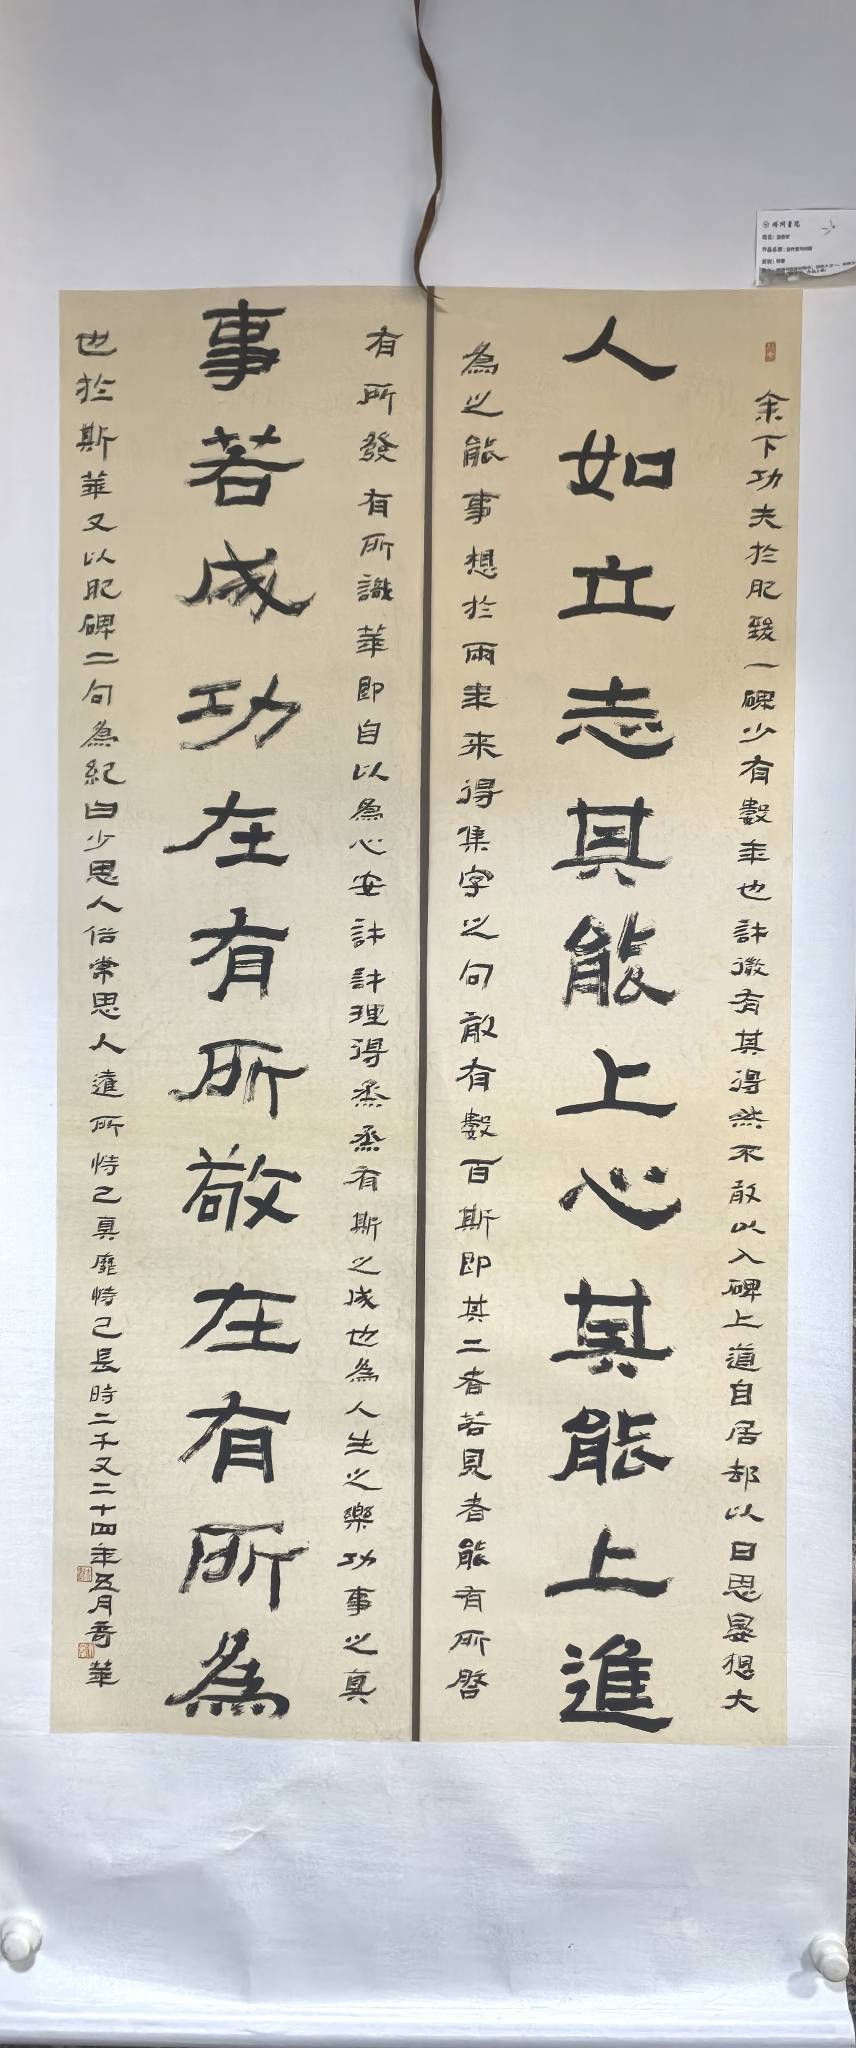 人如立志其能上心其能上進
事若成功在有所敬在有所為
余下功夫於肥致一碑少有數年也許微有其得然不敢以入碑上道自居却以日思晏想大
為之能事想於兩年來得集字之句敢有數百斯即其二者若見者能有所啓
有所發有所識華即自以為心安許許理得烝烝有斯之成也為人生之樂功事之真
也於斯華又以肥碑二句為紀曰少思人俗常思人遠所恃己真靡恃己長時二千又二十四年五月喬華